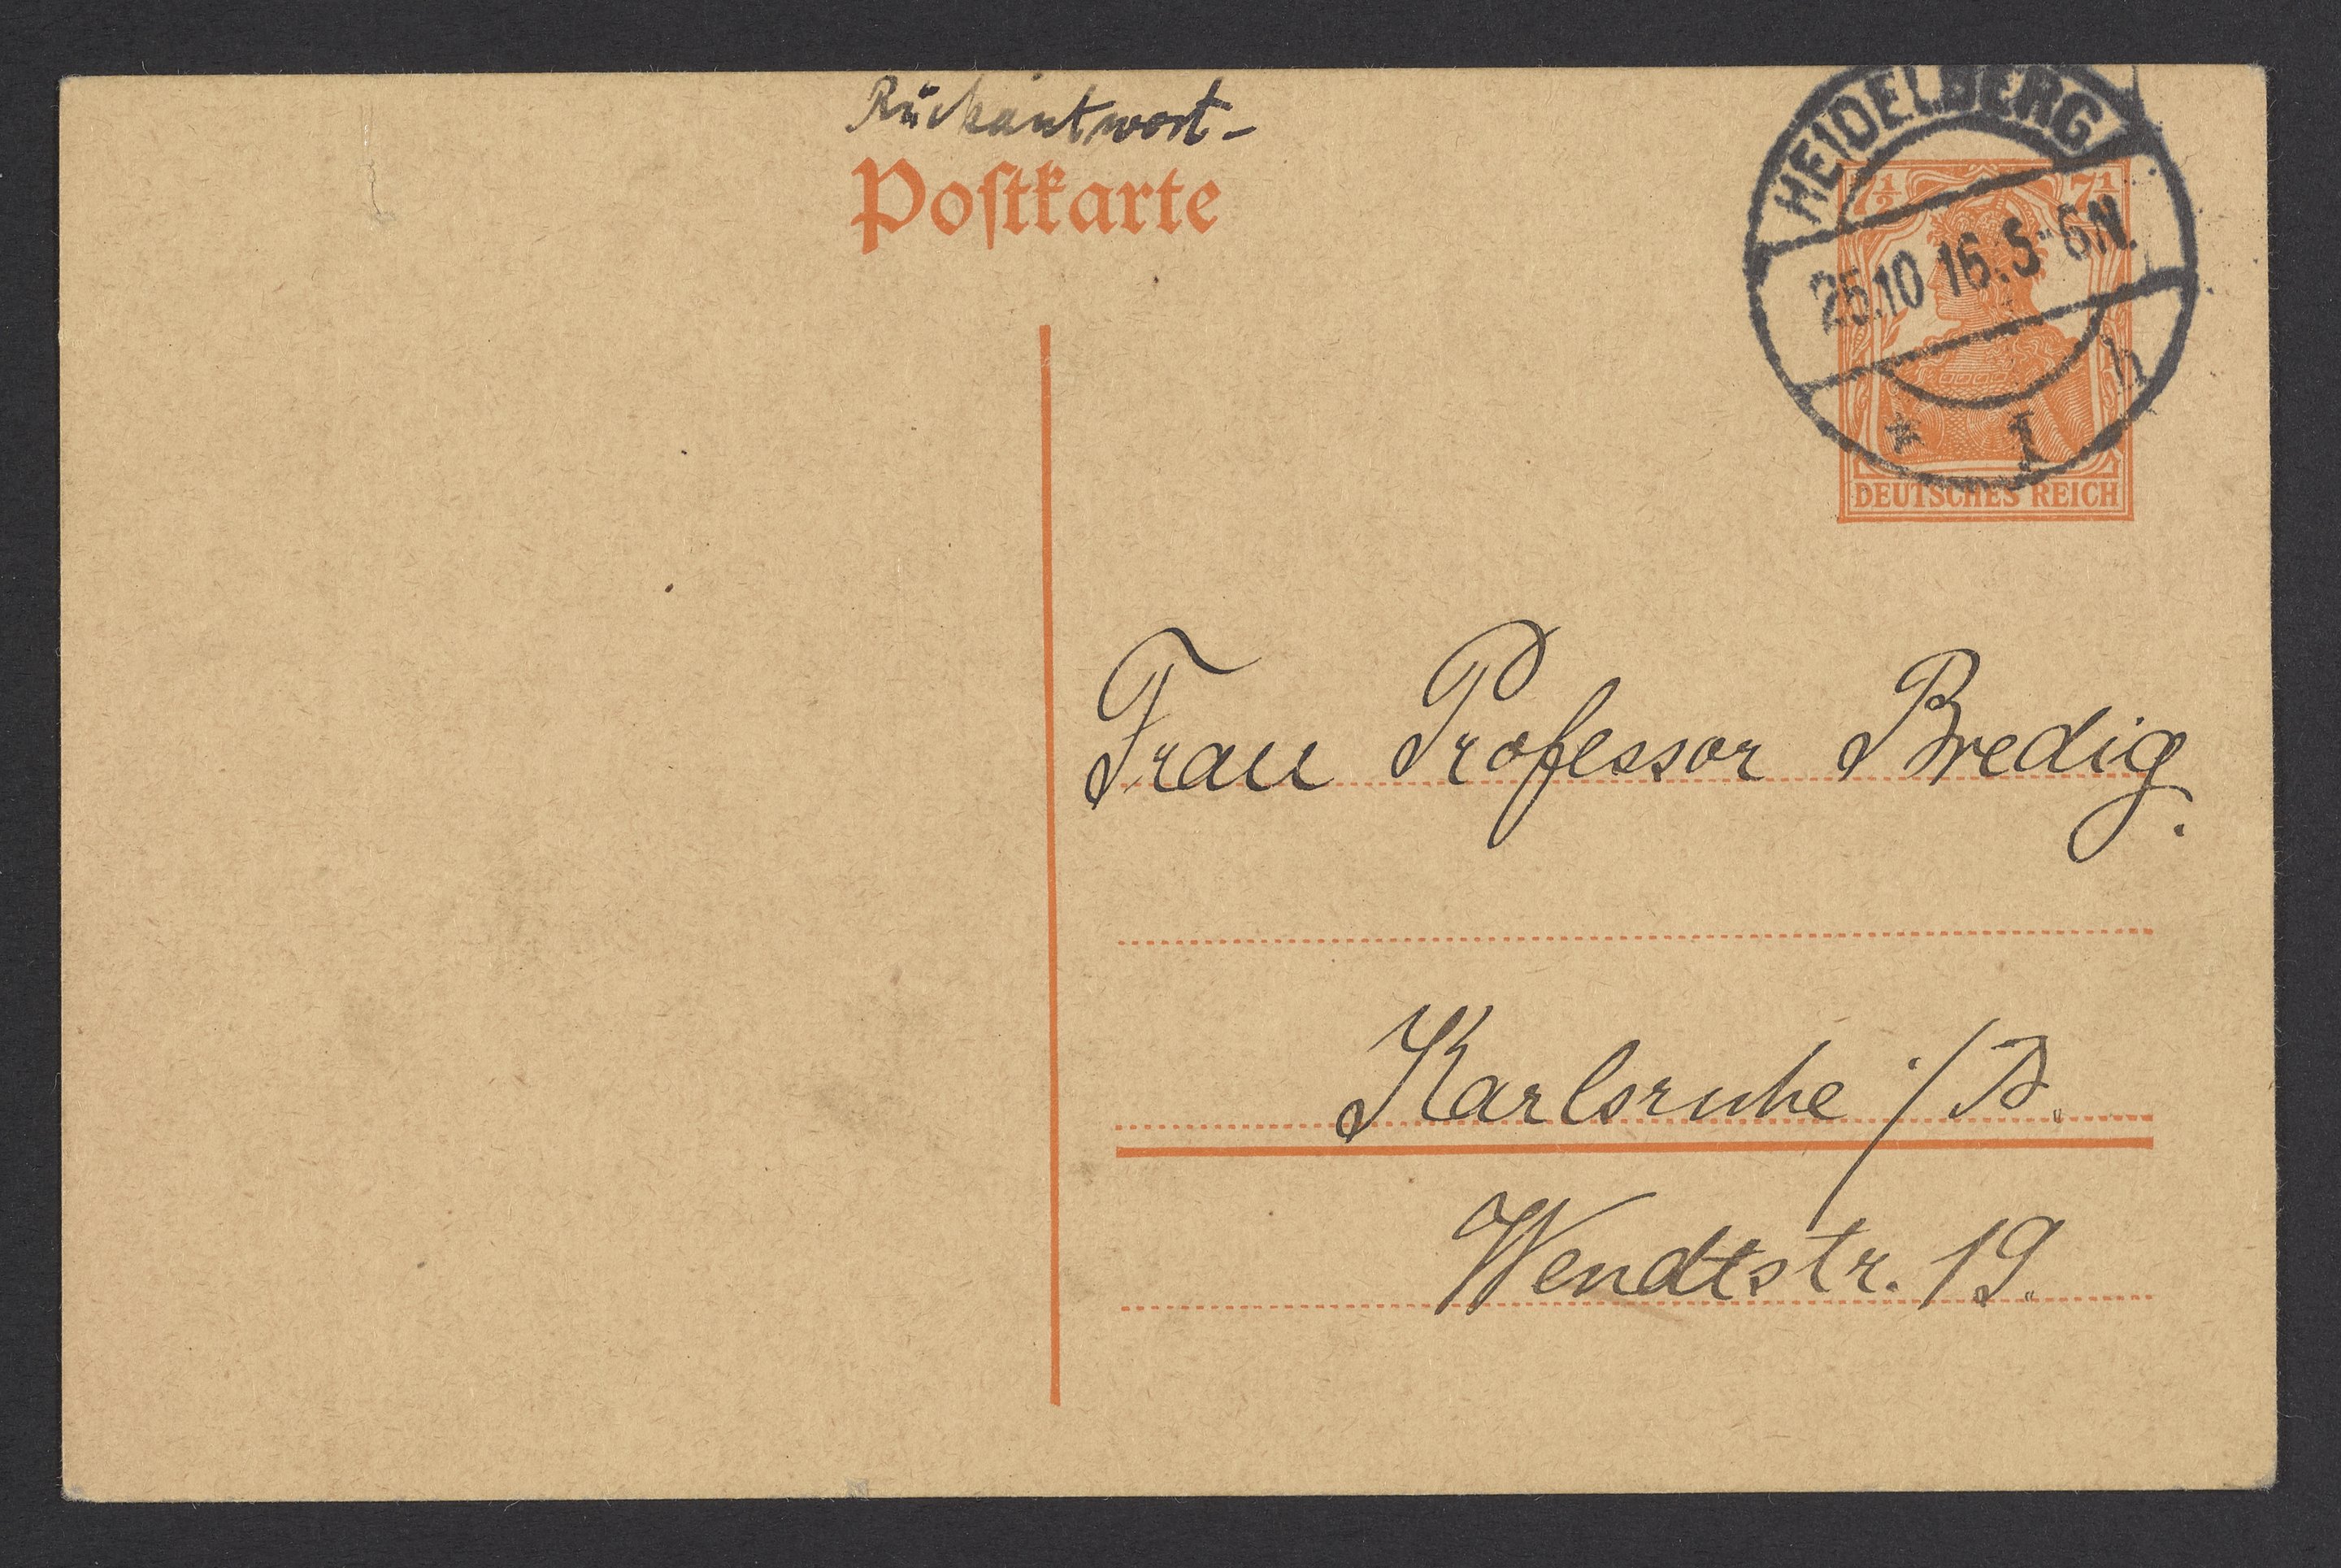 Rückantwort-
Postkarte
HEIDELBERG
7½ 7½
25.10 16. 5-6N.
* 1 h
DEUTSCHES REICH
Frau Professor Bredig.
Karlsruhe i/B.
Wendtstr. 19.